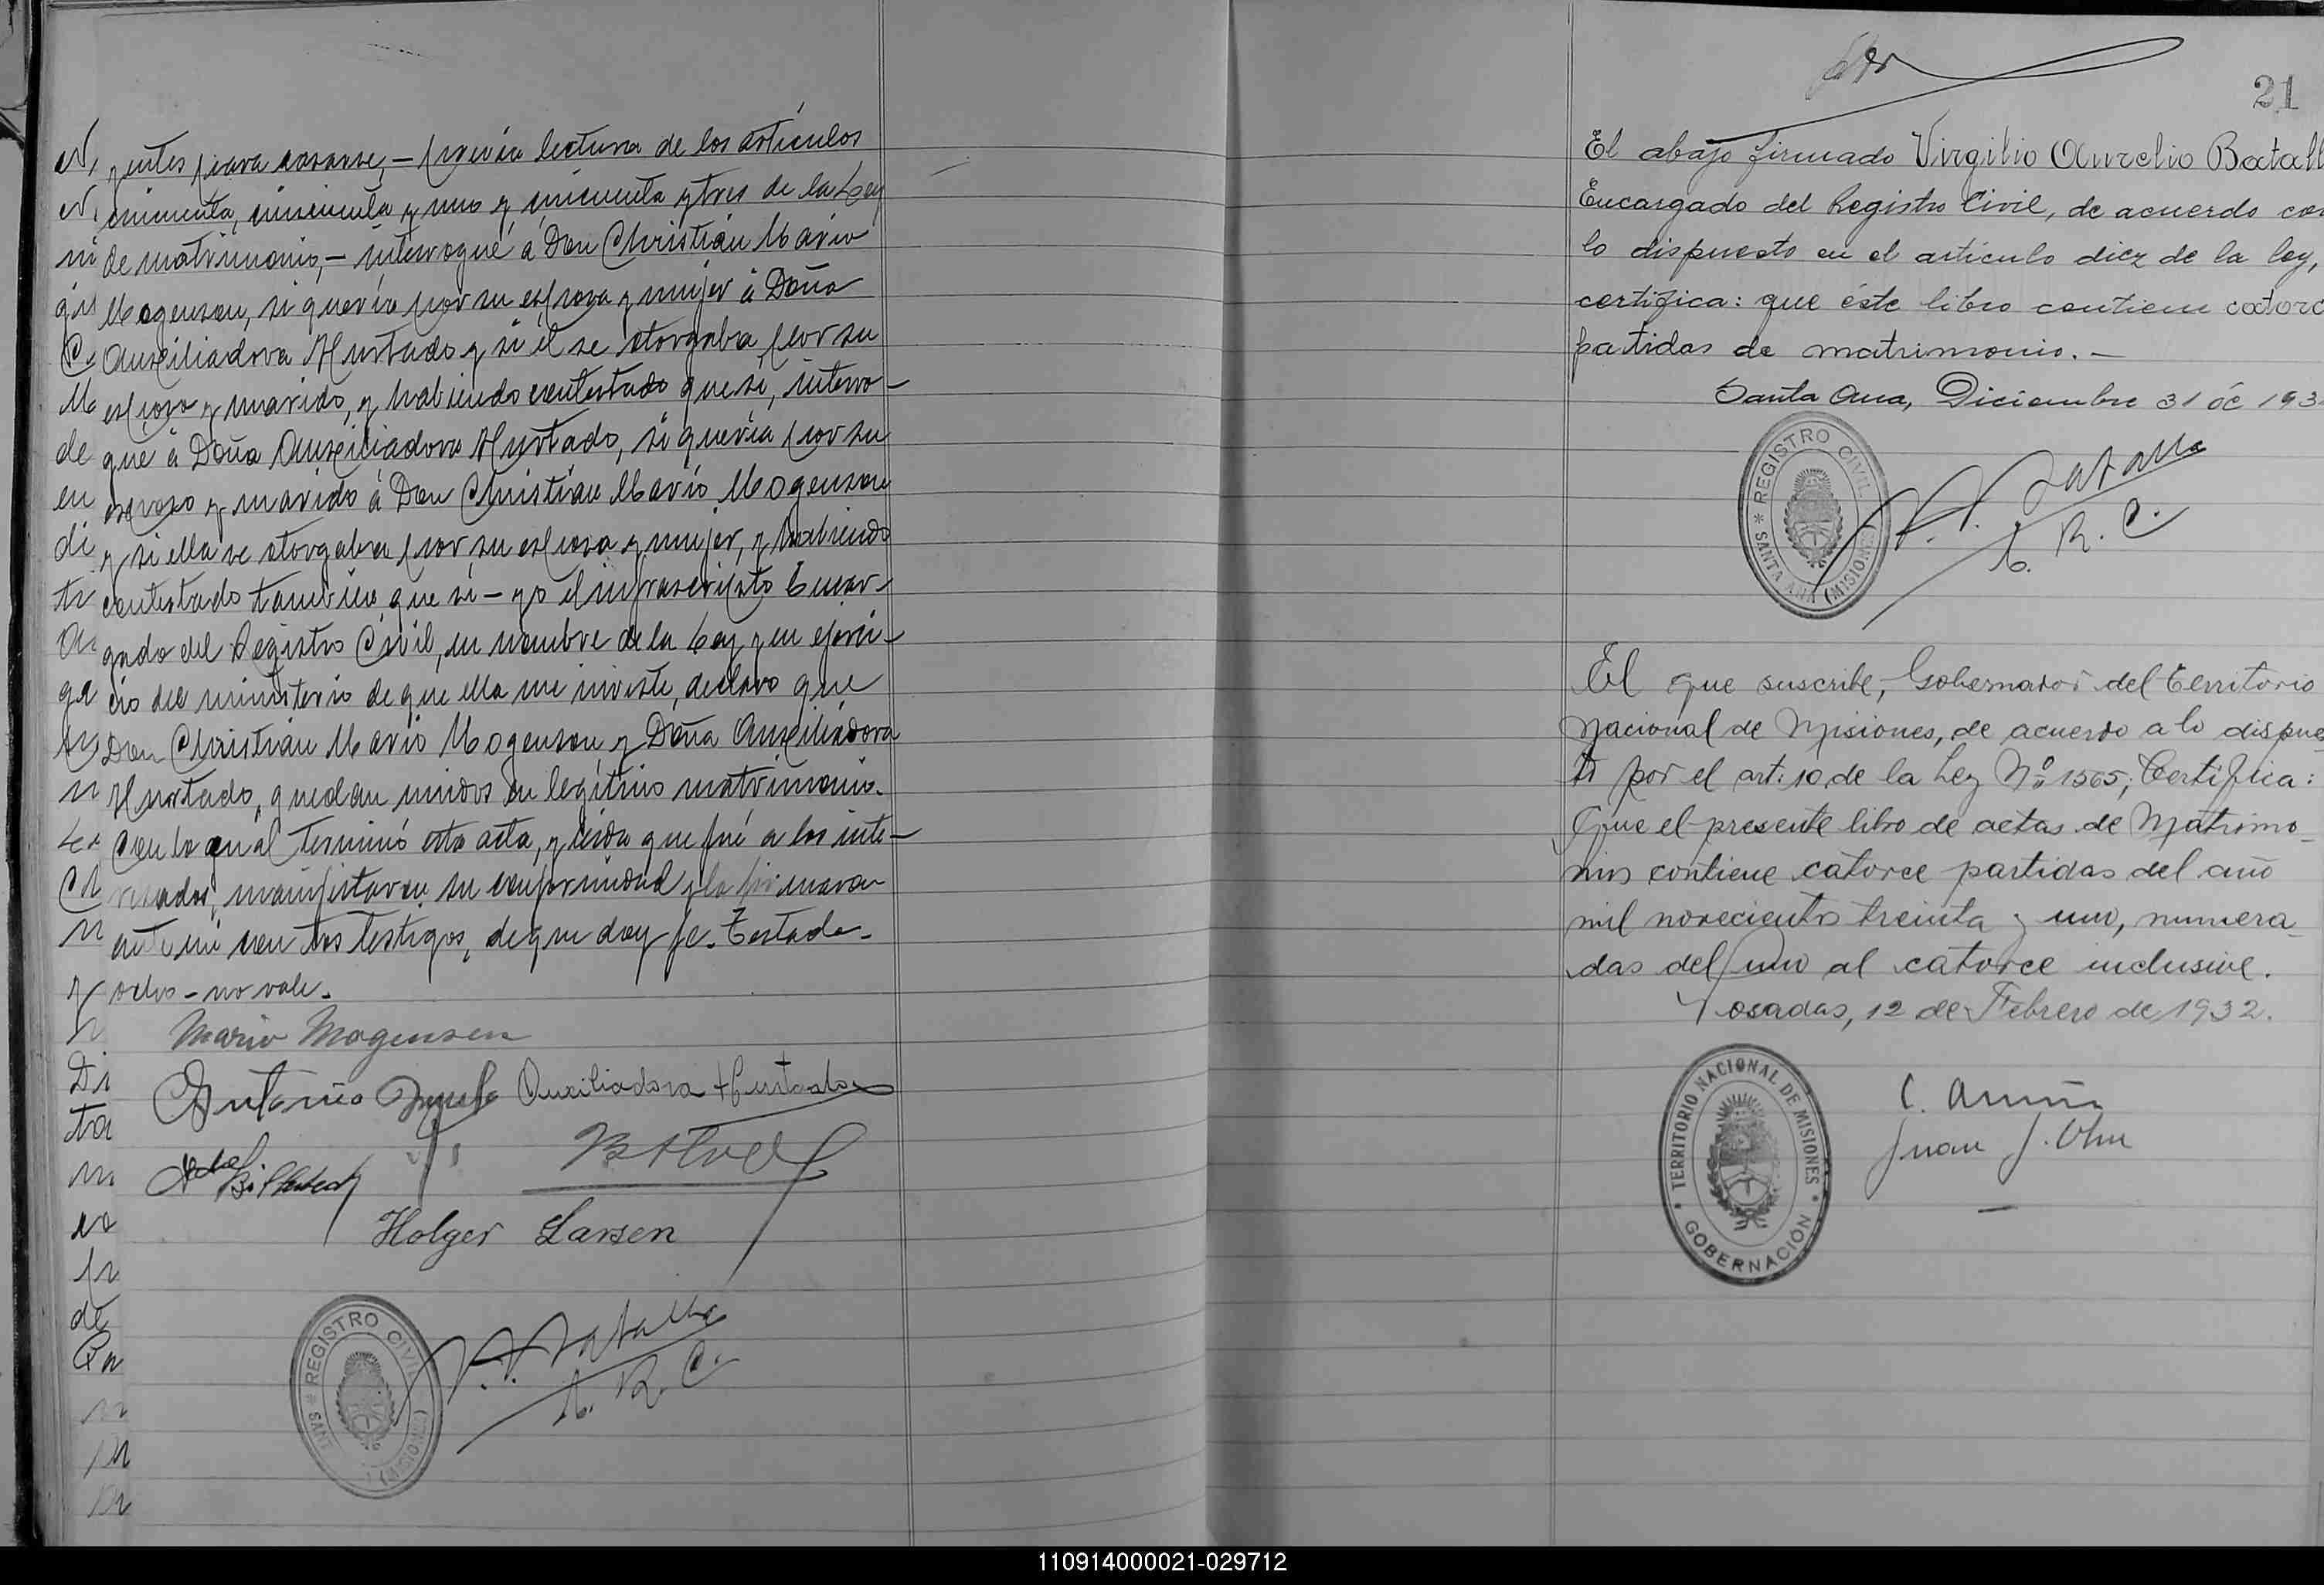 yentes para casarse, - previa lectura de los artículos
cincuenta, cincuenta y uno y cincuenta y tres de la Ley
de matrimonio, - interrogué á Don Christian Mario
Mogensen, si quería por su esposa y mujer á Doña
Auxiliadora Hurtado y si él se otorgaba por su
esposo y marido, y habiendo contestado que si, interro-
gué á Doña Auxiliadora Hurtado, si quería por su
esposo y marido á Don Christian Mario Mogensen
y si ella se otorgaba por su esposa y mujer, y habiendo
contestado tambien que si - yo el infrascripto Encar-
gado del Registro Civil, en nombre de la Ley y en ejerci-
cio del ministerio de que ella me inviste, declaro que
Don Christian Mario Mogensen y Doña Auxiliadora
Hurtado, quedan unidos en legítimo matrimonio.
Con lo cual terminó esta acta, y leida que fué a los inte-
resados, manifestaron su conformidad y la firmaron
ante mi con los testigos, de que doy fe. Testado-
ocho - no vale.
Mario Mogensen
Antonio Auxiliadora Hurtado
Holger Larsen
REGISTRO CIVIL
SANT (MISIONES)
V. A. Batalla
E. R. C.
21
El abajo firmado Virgilio Aurelio Batall
Encargado del Registro Civil, de acuerdo con
lo dispuesto en el artículo diez de la ley,
certifica: que éste libro contiene catorc
partidas de matrimonio. -
Santa Ana, Diciembre 31 de 193
REGISTRO CIVIL
SANTA ANA (MISIONES)
V. A. Batalla
E. R. C.
El que suscribe, Gobernador del Territorio
Nacional de Misiones, de acuerdo a lo dispues
to por el art: 10 de la Ley Nº 1565; Certifica:
Que el presente libro de actas de Matrimo-
nios contiene catorce partidas del año
mil novecientos treinta y uno, numera-
das del uno al catorce inclusive.
Posadas, 12 de Febrero de 1932.
TERRITORIO NACIONAL DE MISIONES
GOBERNACIÓN
Juan J.
110914000021-029712